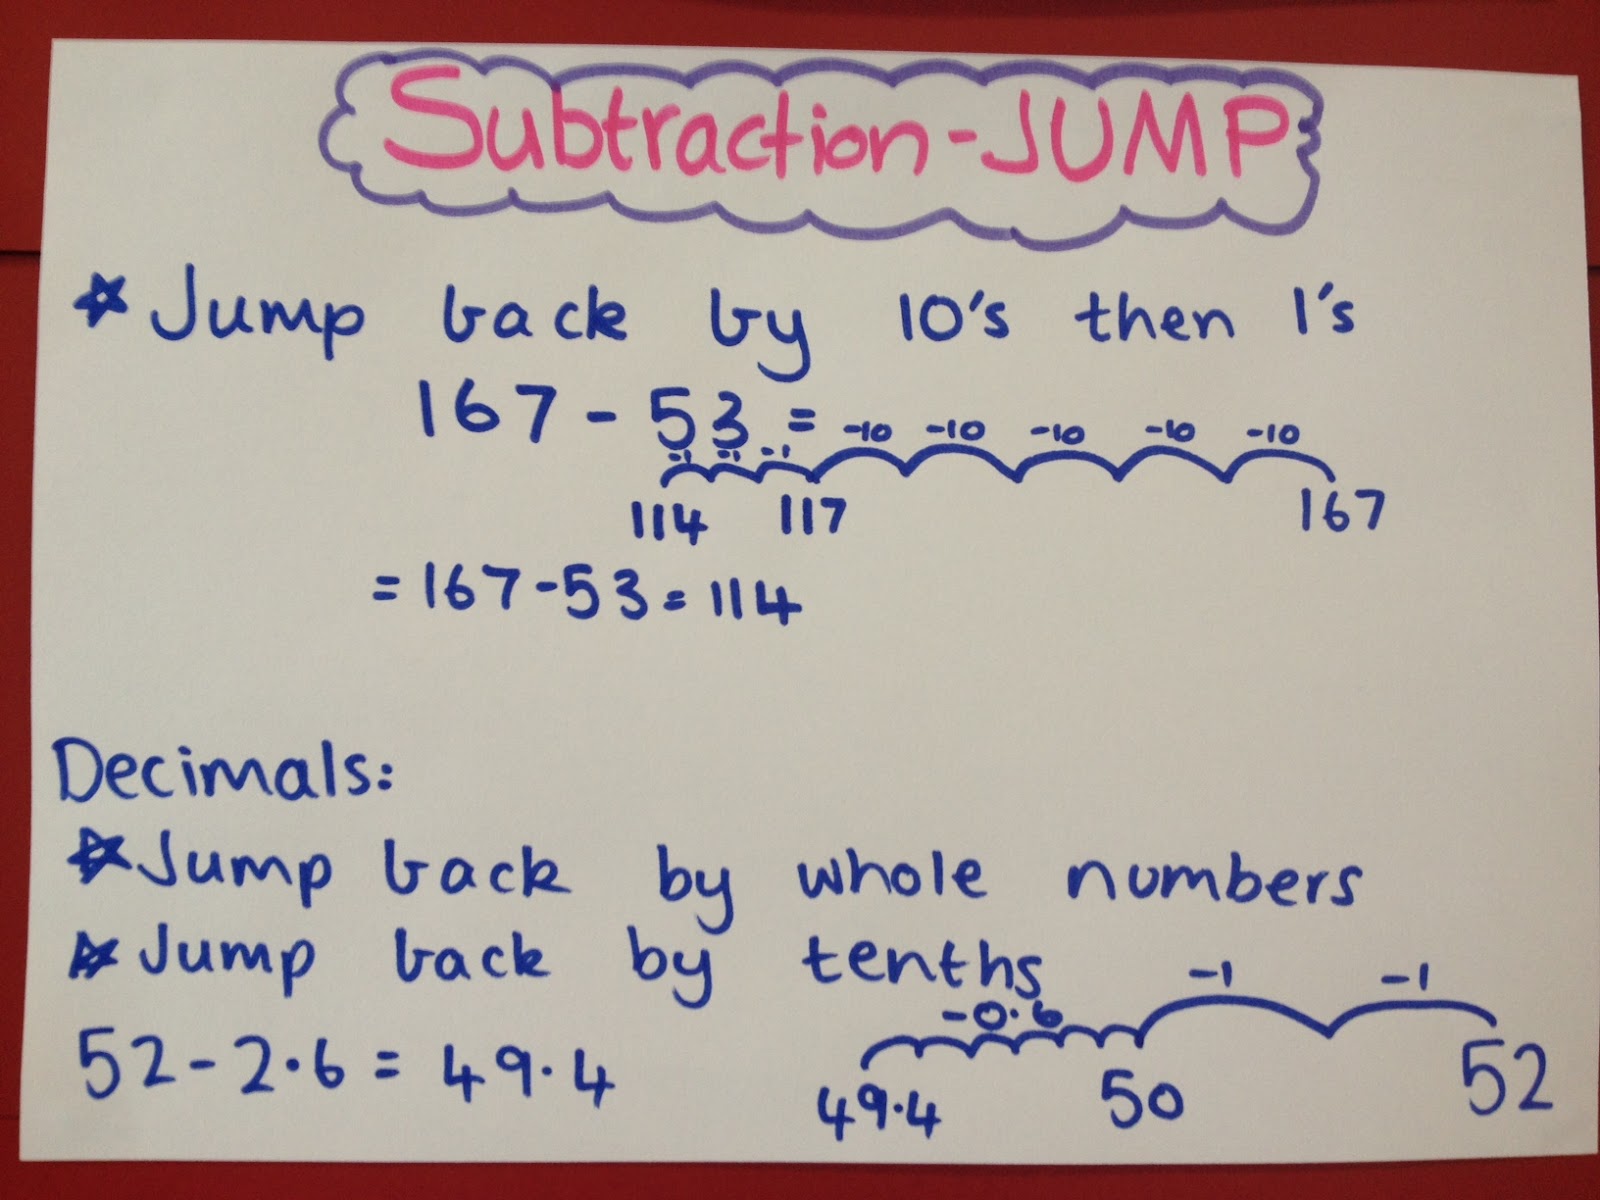 Subtraction-JUMP
☆ Jump back by 10's then 1's
167 - 53 =
-1 -1 -1 -10 -10 -10 -10 -10
114 117 167
= 167-53 = 114
Decimals:
☆ Jump back by whole numbers
☆ Jump back by tenths
-0.6 -1 -1
52-2.6 = 49.4
49.4 50 52